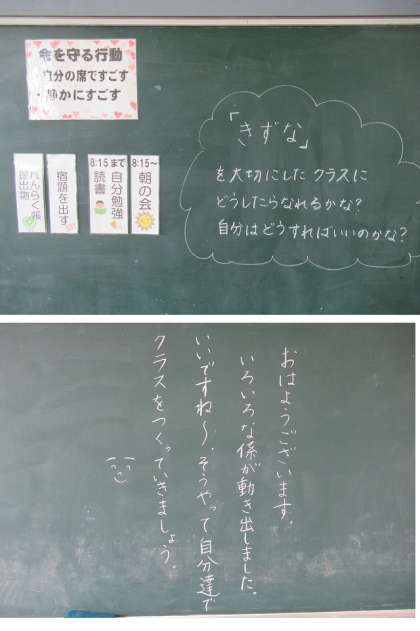 命を守る行動
・自分の席ですごす
・静かにすごす
8:15～
朝の会
8:15まで
自分勉強
読書
宿題を出す
れんらく帳
提出物
「きずな」
を大切にした クラスに
どうしたらなれるかな？
自分はどうすればいいのかな？
おはようございます。
いろいろな係が動き出しました。
いいですね〜。そうやって自分達で
クラスをつくっていきましょう。